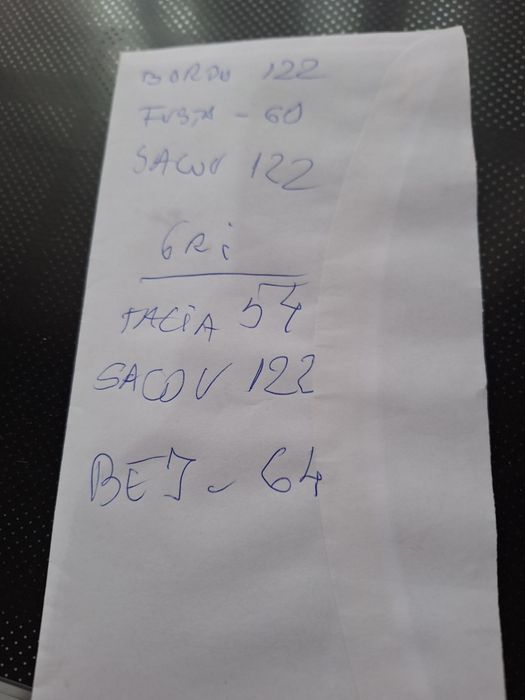 BORDO 122
FUSTA - 60
SACOU 122
GRi
TALiA 54
SACOU 122
BEJ - 64